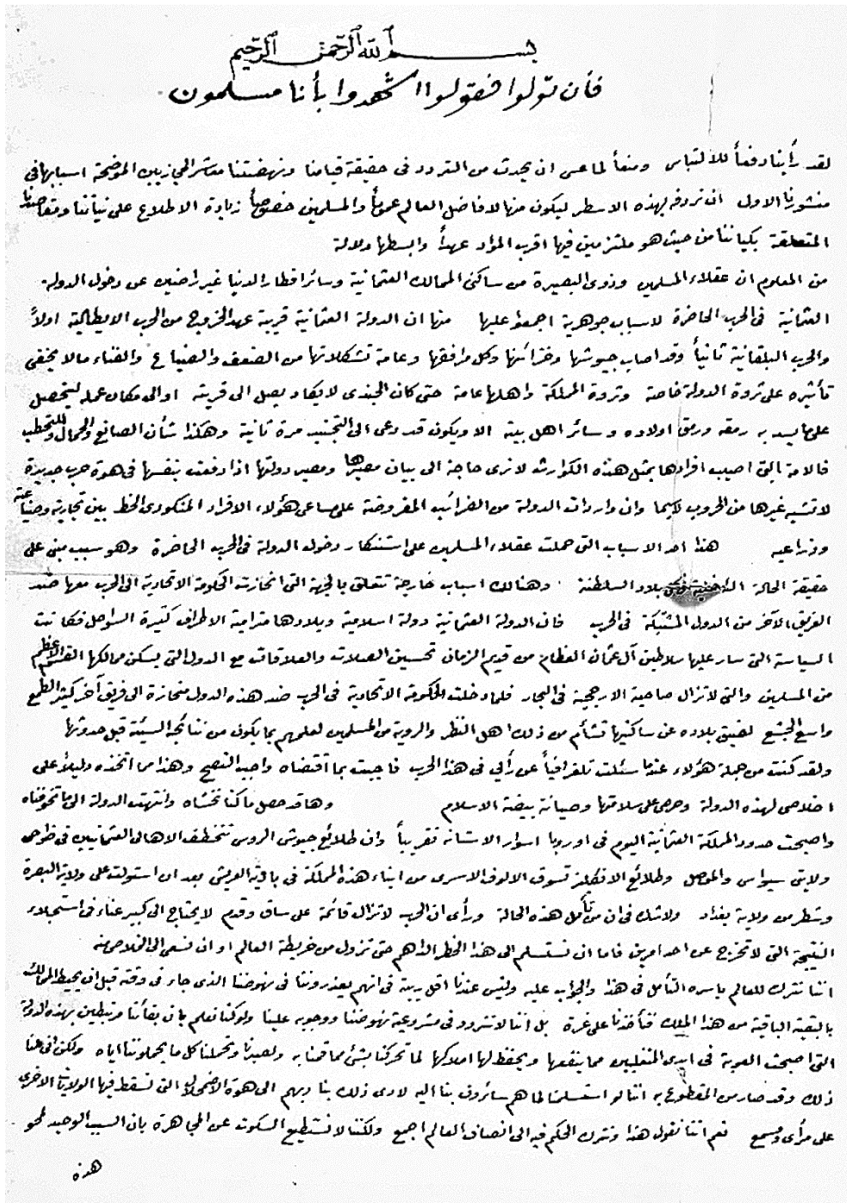 بسم الله الرحمن الرحيم
فأن تولوا فقولوا اشهدوا بأنا مسلمون
لقد رأينا دفعاً للألتباس ومنعاً لما عسى ان يحدث من التردد فى حقيقة قيامنا ونهضتنا معشر الحجازيين الموضحة اسبابها فى
منشورنا الاول ان نردفه بهذه الاسطر ليكون منها لافاضل العالم عموماً والمسلمين خصوصاً زيادة الاطلاع على نياتنا ومقاصدنا
المتعلقة بكياننا من حيث هو ملتزمين فيها اقرب المواد عهداً وابسطها دلالة
من المعلوم ان عقلاء المسلمين وذوى البصيرة من ساكنى الممالك العثمانية وسائر اقطار الدنيا غير راضين عن دخول الدولة
العثمانية فى الحرب الحاضرة لاسباب جوهرية اجمعوا عليها منها ان الدولة العثمانية قريبة عهد الخروج من الحرب الايطالية اولاً
والحرب البلقانية ثانياً وقد اصاب جيوشها وخزائنها وكل مرافقها وعامة تشكلاتها من الضعف والضياع والفناء مالا يخفى
تأثيره على ثروة الدولة خاصة وثروة المملكة واهلها عامة حتى كان الجندى لا يكاد يصل الى قريته او الى مكان عمله ليتحصل
على ما يسد به رمقه ورمق اولاده وسائر اهل بيته الا ويكون قد دعى الى التجنيد مرة ثانية وهكذا شأن الصانع والحمال والمحتطب
فالامة التى اصيب افرادها بمثل هذه الكوارث لا نرى حاجة الى بيان مصيرها ومصير دولتها اذا دفعت بنفسها فى هوة حرب جديدة
لا تشبه غيرها من الحروب لاسيما وان واردات الدولة من الضرائب المفروضة على مساعى هؤلاء الافراد المنكودى الحظ بين تجارية وصناعية
وزراعيه هذا احد الاسباب التى حملت عقلاء المسلمين على استنكار دخول الدولة فى الحرب الحاضرة وهو سبب مبنى على
حقيقة الحالة الداخلية فى بلاد السلطنة وهنالك اسباب خارجة تتعلق بالجهة التى انحازت الحكومة الاتحادية الى الحرب معها ضد
الفريق الآخر من الدول المشتبكة فى الحرب فان الدولة العثمانية دولة اسلامية وبلادها مترامية الاطراف كثيرة السواحل فكانت
السياسة التى سار عليها سلاطين آل عثمان العظام من قديم الزمان تحسين الصلات والعلاقات مع الدول التى يسكن ممالكها القسم الاعظم
من المسلمين والتى لا تزال صاحبة الارجحية فى البحار فلما دخلت الحكومة الاتحادية فى الحرب ضد هذه الدول منحازة الى فريق آخر كثير الطمع
واسع الجشع لضيق بلاده عن ساكنيها تشأم من ذلك اهل النظر والروية من المسلمين لعلمهم بما يكون من نتائجه السيئة قبل حدوثها
ولقد كنت من جملة هؤلاء عندما سئلت تلغرافياً عن رأيى فى هذا الحرب فاجبت بما اقتضاه واجب النصح وهذا مما اتخذه دليلاً على
اخلاصى لهذه الدولة وحرصى على سلامتها وصيانة بيضة الاسلام وها قد حصل ما كنا نخشاه وانتهت الدولة الى ما تخوفناه
واصبحت حدود المملكة العثمانية اليوم فى اوروبا اسوار الاستانة تقريباً وان طلائع جيوش الروس تتخطف الاهالى العثمانيين فى ضواحى
ولايتى سيواس والموصل وطلائع الانكليز تسوق الالوف الاسرى من ابناء هذه المملكة فى باقية العريش بعد ان استولت على ولاية البصرة
وشطر من ولاية بغداد ولاشك فى ان من تأمل هذه الحالة ورأى ان الحرب لا تزال قائمة على ساق وقدم لا يحتاج الى كبير عناء فى استجلاء
النتيجة التى لا تخرج عن احد امرين فاما ان نستسلم الى هذا الخطر الداهم حتى نزول من خريطة العالم او ان نسعى الى الخلاص منه
اننا نترك للعالم باسره التأمل فى هذا والجواب عليه وليس عندنا اقل ريبة فى انهم يعذروننا فى نهوضنا الذى جاء فى وقته قبل ان يحيط الهلاك
بالبقية الباقية من هذا الملك فتأخذنا على غرة بل اننا لا نتردد فى مشروعية نهوضنا ووجوبه علينا ولو كنا نعلم بان بقأنا مرتبطين بهذه الدولة
التى اصبحت العوبة فى ايدى المتغلبين مما ينفعها ويحفظ لها املاكها لما تحركنا بشئ مما قمنا به ولصبرنا وتحملنا كل ما يحملوننا اياه ولكن انى لنا
ذلك وقد صار من المقطوع به اننا لو استسلمنا لما هم سائرون بنا اليه لادى ذلك بنا وبهم الى هوة الاضمحلال التى تسقط فيها الولايات الاخرى
على مرأى ومسمع نعم اننا نقول هذا ونترك الحكم فيه الى انصاف العالم اجمع ولكننا لا نستطيع السكوت عن المجاهرة بان السبب الوحيد لمحو
هذه